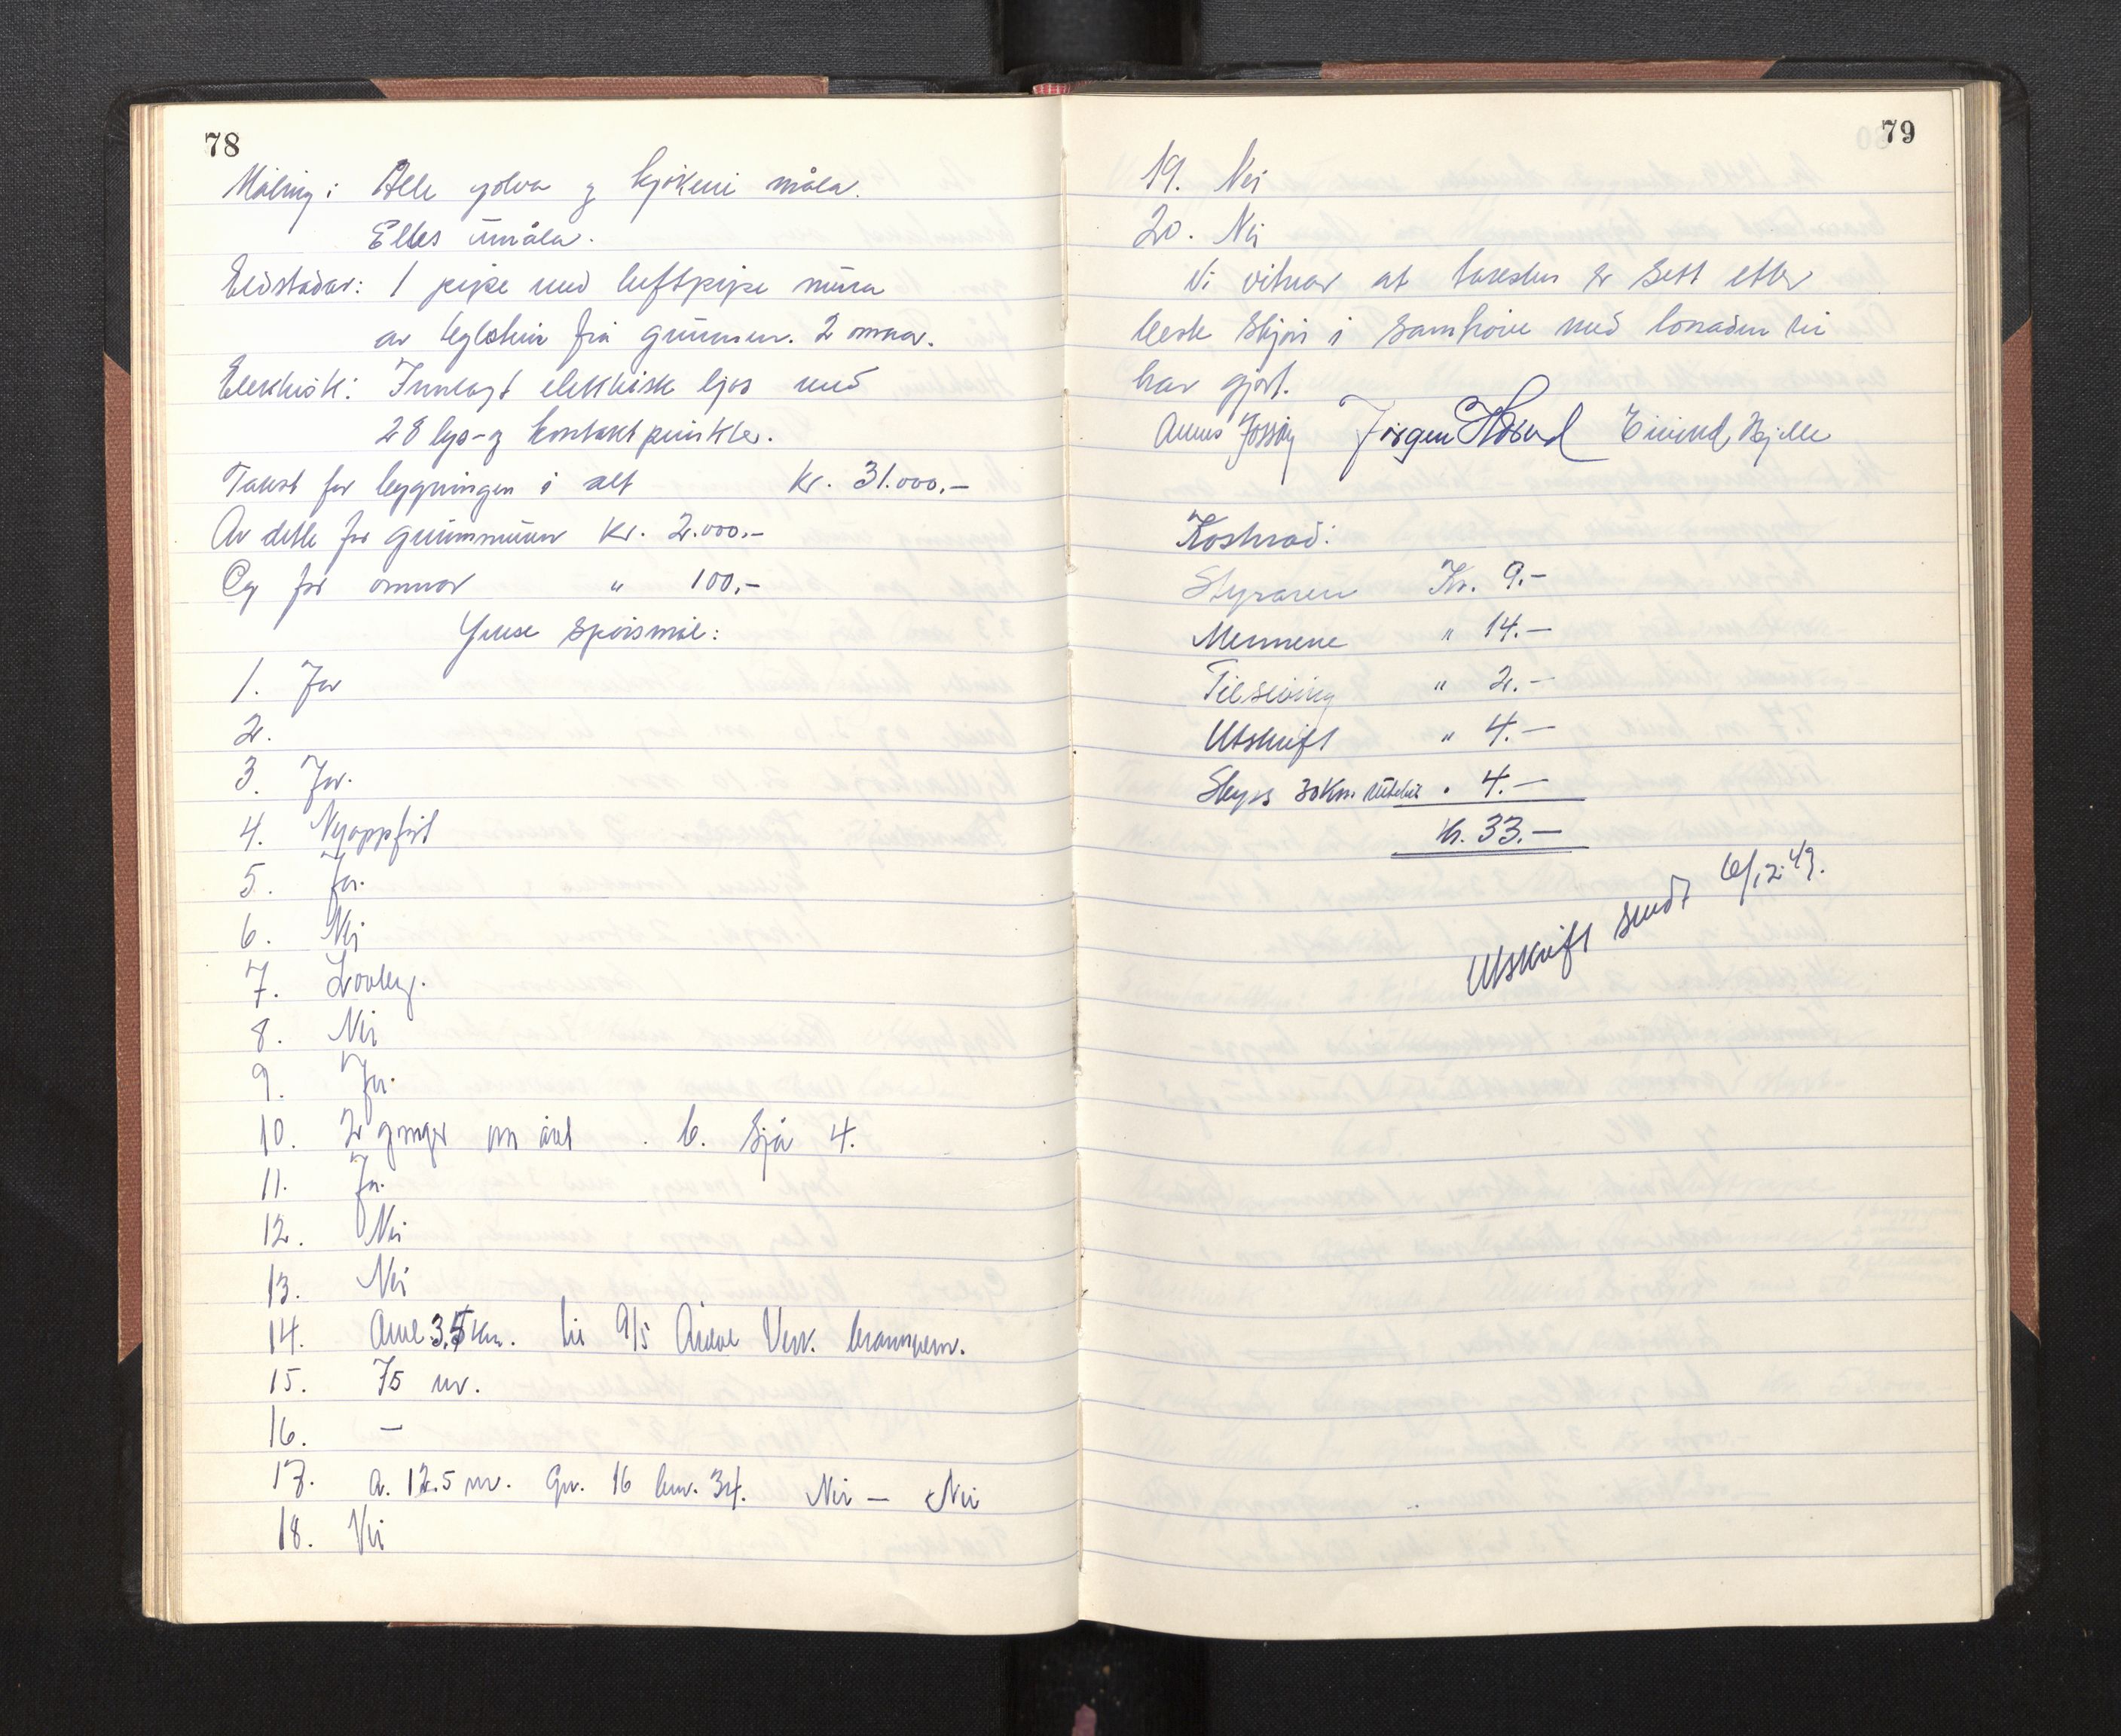 78
Måling: Alle golva og kjøkeni måla.
Elles umåla.
Eldstadar: 1 pipe med luftpipe mura
av teglstein frå grunnen. 2 omnar.
Elektrisk: Innlagt elektrisk ljos med
28 lys- og kontaktpunkter.
Takst for bygningen i alt kr. 31.000,-
Av dette for grunnmuren kr. 2.000.-
Og for omnar " 100,-
Ymse spörsmål:
1. Ja
2.
3. Ja.
4. Nyoppfört
5. Ja.
6. Nei
7. Lovleg.
8. Nei
9. Ja.
10. 2 gonger om året . b. Sjå 4.
11. Ja.
12. Nei
13. Nei
14. Om 3.5 km. til A/S Årdal Verk. brannvern.
15. 75 m.
16. —
17. a. 12.5 m. Gnr. 16 bnr. 34. Nei — Nei
18. Nei
79
19. Nei
20. Nei
Vi vitnar at taksten er sett etter
beste skjön i samhöve med lovnaden vi
har gjort.
Jörgen Eivind Hjelle
Kostnad:
Styraren Kr. 9.-
Mennene " 14.-
Tilseiing " 2.-
Utskrift " 4.-
Skyss 30 km. " 4.-
kr. 33.-
Utskrift sendt 6/12.49.